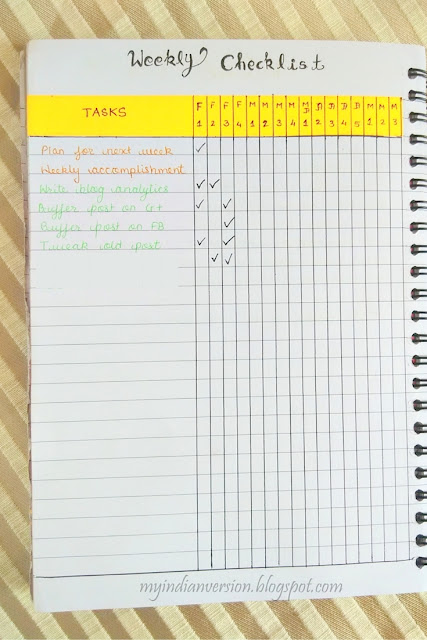 Weekly Checklist
TASKS F F F F M M M M D D D D M M M
1 2 3 4 1 2 3 4 1 2 3 4 5 1 2 3
Plan for next week ✓
Weekly accomplishment
Write blog analytics ✓ ✓
Buffer post on G+ ✓ ✓
Buffer post on FB ✓
Tweak old post ✓ ✓
✓ ✓
myindianversion.blogspot.com